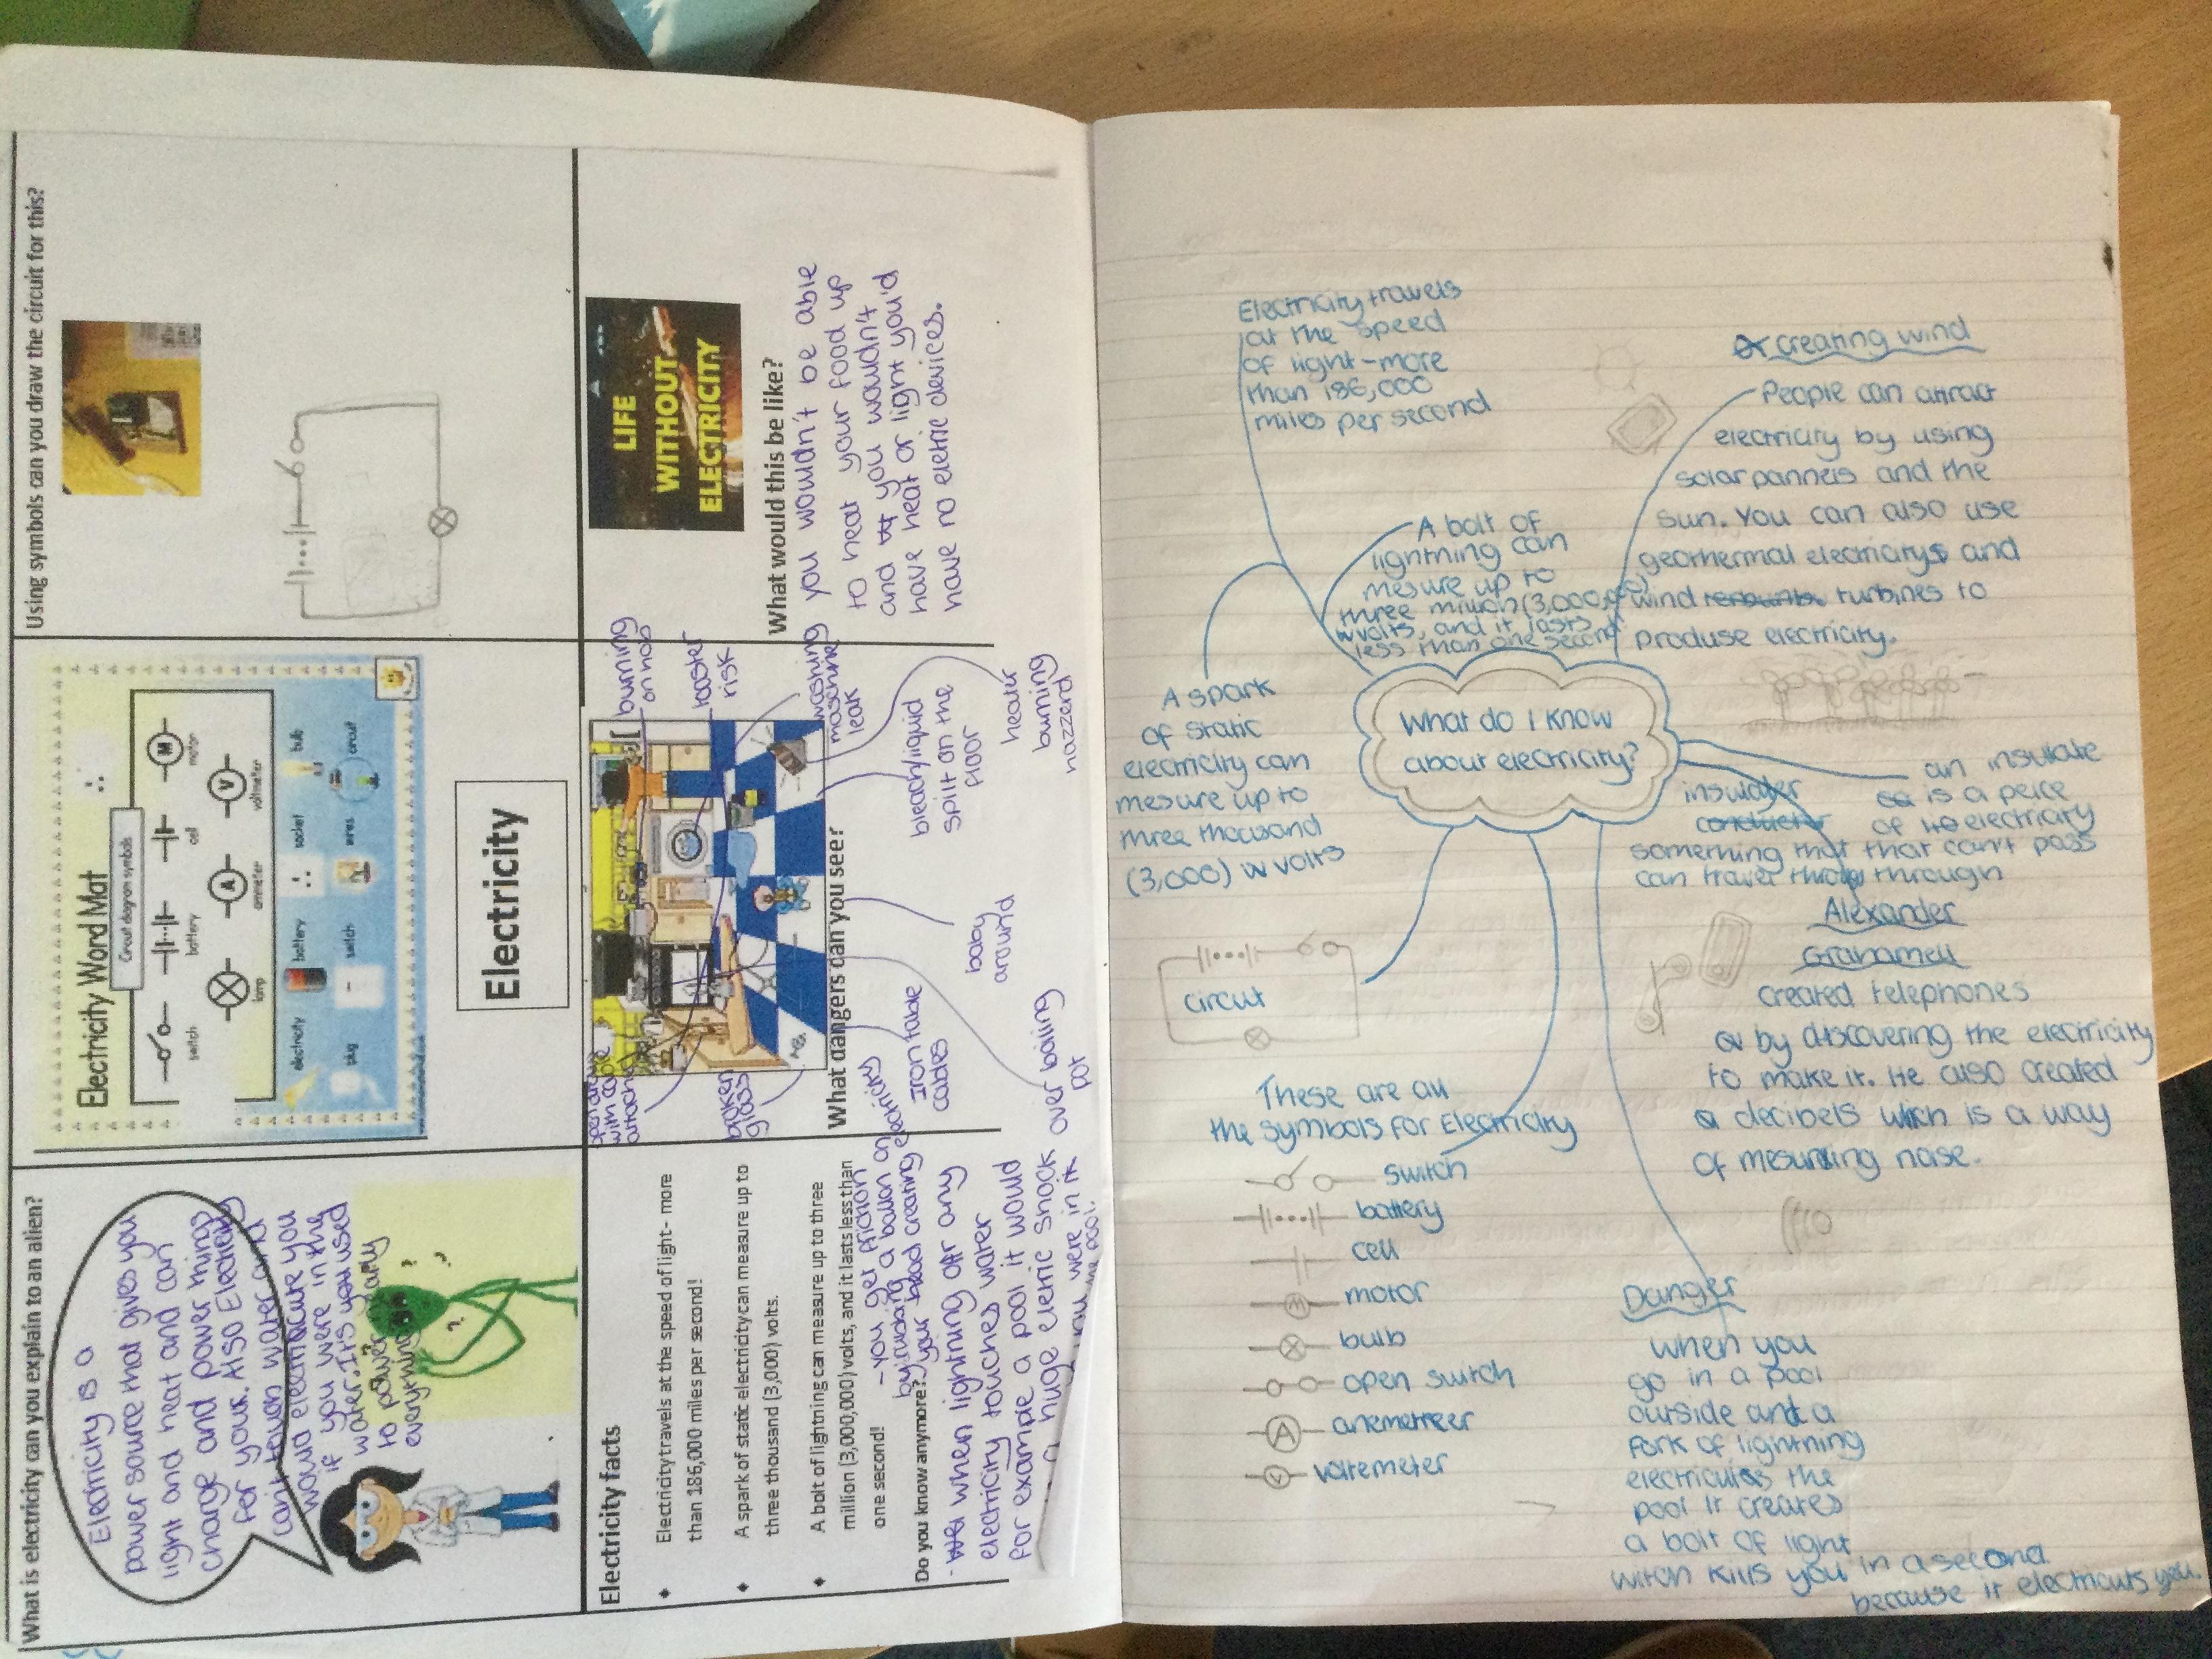 What is electricity can you explain to an alien?
Electricity is a
power source that gives you
light and heat and can
charge and power things
for your. Also Electricity
can't touch water and
would electricute you
if you were in the
water. It's you used
to power
everything
Electricity Word Mat
Circuit diagram symbols
switch
battery
cell
motor
lamp
ammeter
voltmeter
electricity
battery
socket
bulb
plug
switch
wires
circuit
Electricity
Using symbols can you draw the circuit for this?
Electricity facts
Electricity travels at the speed of light - more
than 186,000 miles per second!
A spark of static electricity can measure up to
three thousand (3,000) volts.
A bolt of lightning can measure up to three
million (3,000,000) volts, and it lasts less than
one second!
- you get friction
by rubbing a ballon on
your head creating electricity
Do you know anymore?
- when lightning off any
electricity touches water
for example a pool it would
a huge eletric shock
you were in it
pool.
burning
on hob
toaster
risk
washing
maschine
leak
bleach/liquid
spilt on the
floor
heater
burning
hazzerd
baby
around
Iron table
cables
over boiling
pot
broken
glass
What dangers can you see?
LIFE
WITHOUT
ELECTRICITY
What would this be like?
you wouldn't be able
to heat your food up
and you wouldn't
have heat or light you'd
have no eletric devices.
Electricity travels
at the speed
of light - more
than 186,000
miles per second
A bolt of
lightning can
mesure up to
three million (3,000,000)
volts, and it lasts
less than one second
A spark
of static
electricity can
mesure up to
three thousand
(3,000) volts
creating wind
People can attract
electricity by using
solar pannels and the
sun. You can also use
geothermal electricitys and
wind turbines to
produce electricity.
What do I know
about electricity?
insulater
conducter
something that
can travel through
an insulate
is a peice
of electricity
that can't pass
through
circut
These are all
the symbols for Electricity
switch
battery
cell
motor
bulb
open switch
anemetreer
voltemeter
Alexander
Grahamell
created telephones
by discovering the electricity
to make it. He also created
a decibels which is a way
of mesurking noise.
Danger
when you
go in a pool
outside and a
fork of lightning
electricutes the
pool it creates
a bolt of light
witch kills you in a second
because it electricuts you.